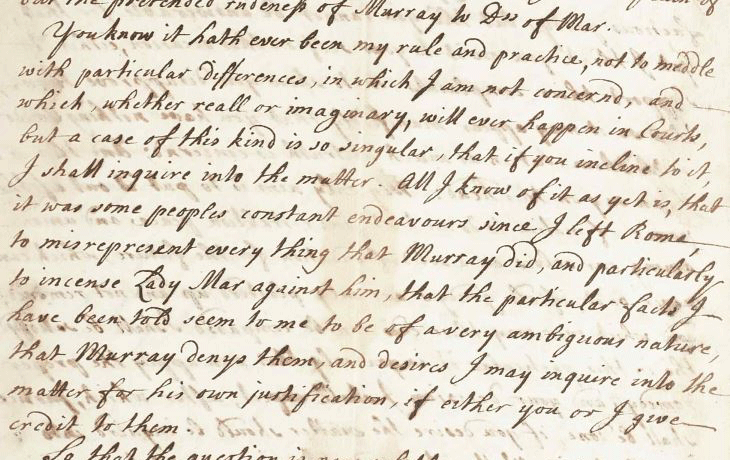 but the pretended rudeness of Murray to Dss of Mar.
You know it hath ever been my rule and practice, not to meddle
with particular differences, in which I am not concernd, and
which, whether reall or imaginary, will ever happen in Courts,
but a case of this kind is so singular, that if you incline to it,
I shall inquire into the matter. All I know of it as yet is, that
it was some peoples constant endeavours since I left Rome,
to misrepresent every thing that Murray did, and particularly
to incense Lady Mar against him, that the particular facts I
have been told seem to me to be of a very ambiguous nature,
that Murray denys them, and desires I may inquire into the
matter for his own justification, if either you or I give
credit to them.
So that the question is